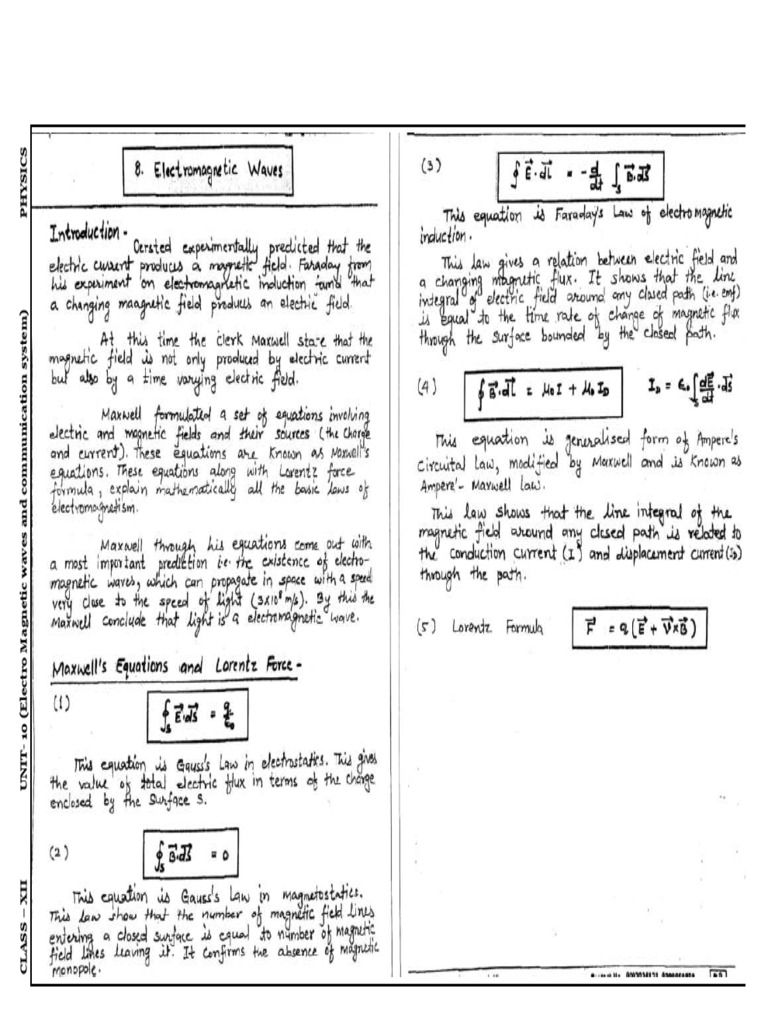 PHYSICS
UNIT- 10 (Electro Magnetic waves and communication system)
CLASS – XII
8. Electromagnetic Waves
Introduction -
Oersted experimentally predicted that the
electric current produces a magnetic field. Faraday from
his experiment on electromagnetic induction found that
a changing maagnetic field produces an electric field.
At this time the clerk Maxwell state that the
magnetic field is not only produced by electric current
but also by a time varying electric field.
Maxwell formulated a set of equations involving
electric and magnetic fields and their sources (the charge
and current). These equations are known as Maxwell's
equations. These equations along with Lorentz force
formula, explain mathematically all the basic laws of
electromagnetism.
Maxwell through his equations come out with
a most important prediction i.e. the existence of electro-
magnetic waves, which can propagate in space with a speed
very close to the speed of light (3×10⁸ m/s). By this the
Maxwell conclude that light is a electromagnetic wave.
Maxwell's Equations and Lorentz Force -
(1)
∮s E⃗.ds⃗ = q/ε₀
This equation is Gauss's Law in electrostatics. This gives
the value of total electric flux in terms of the charge
enclosed by the surface S.
(2)
∮s B⃗.ds⃗ = 0
This equation is Gauss's Law in magnetostatics.
This law show that the number of magnetic field lines
entering a closed surface is equal to number of magnetic
field lines leaving it. It confirms the absence of magnetic
monopole.
(3) ∮ E⃗.dl⃗ = -d/dt ∫s B⃗.ds⃗
This equation is Faraday's Law of electromagnetic
induction.
This law gives a relation between electric field and
a changing magnetic flux. It shows that the line
integral of electric field around any closed path (i.e. emf)
is equal to the time rate of change of magnetic flux
through the surface bounded by the closed path.
(4) ∮ B⃗.dl⃗ = μ₀I + μ₀I_D I_D = ε₀∫s dE⃗/dt.ds⃗
This equation is generalised form of Ampere's
Circuital Law, modified by Maxwell and is known as
Ampere's- Maxwell law.
This law shows that the line integral of the
magnetic field around any closed path is related to
the conduction current (I) and displacement current (i_D)
through the path.
(5) Lorentz Formula F⃗ = q(E⃗ + V⃗×B⃗)